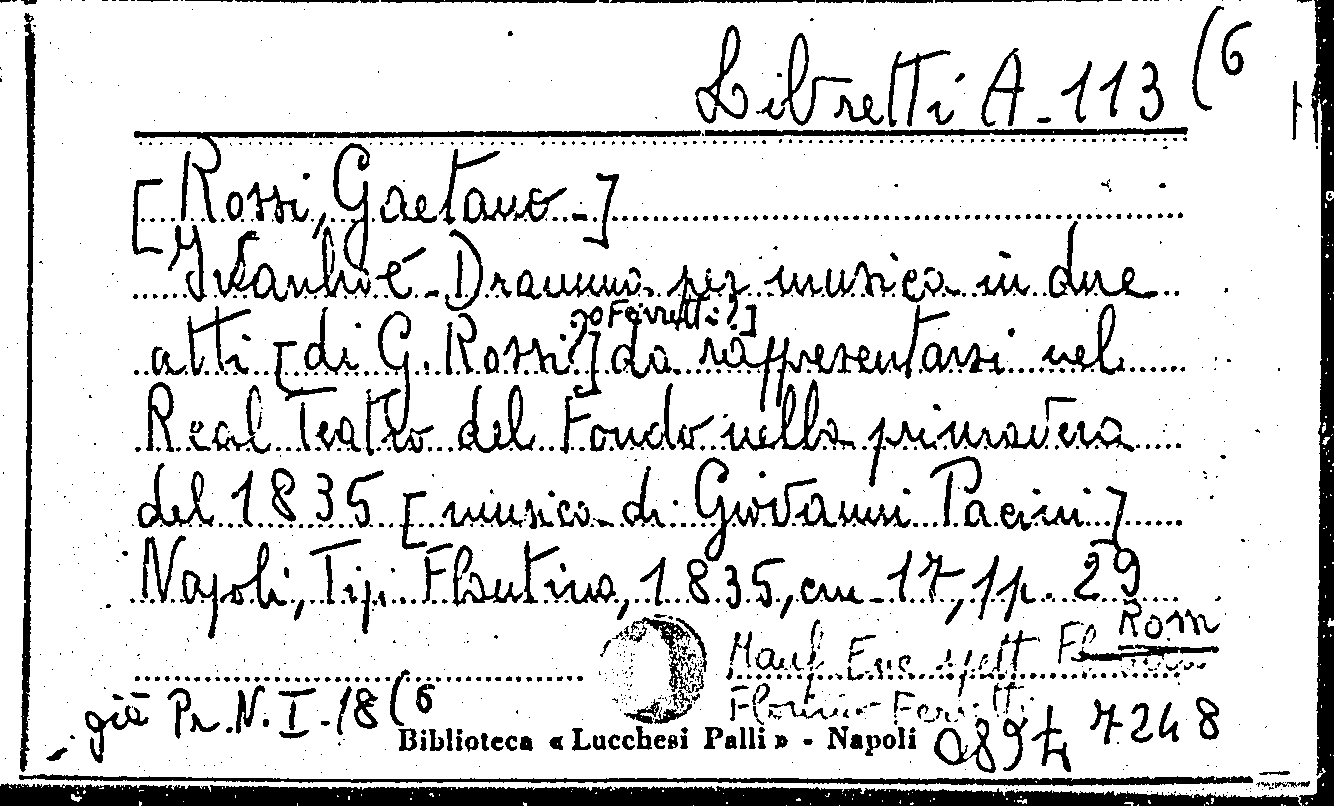 Libretti A-113 (6
[Rossi, Gaetano-]
Ivanhoé-Dramma per musica in due
o Ferretti?]
atti [di G. Rossi?] da rappresentarsi nel
Real Teatro del Fondo nella primavera
del 1835 [musica di Giovanni Pacini]
Napoli, Tip. Flautina, 1835, cm. 17, pp. 29
Rom
Manf
Ferretti
già Pr. N. I-18 (6
7248
Biblioteca « Lucchesi Palli » - Napoli